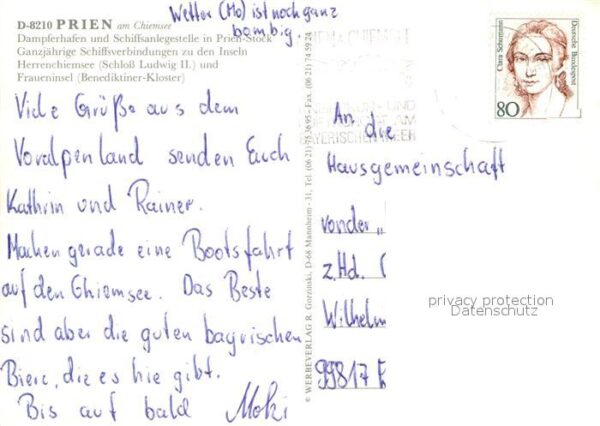 Wetter (Mo) ist noch ganz
bombig.
D-8210 PRIEN am Chiemsee
Dampferhafen und Schiffsanlegestelle in Prien-Stock
Ganzjährige Schiffsverbindungen zu den Inseln
Herrenchiemsee (Schloß Ludwig II.) und
Fraueninsel (Benediktiner-Kloster)
Viele Grüße aus dem
Voralpenland senden Euch
Kathrin und Rainer.
Machen gerade eine Bootsfahrt
auf den Chiemsee. Das Beste
sind aber die guten bayrischen
Biere, die es hie gibt.
Bis auf bald Moki
© WERBEVERLAG R. Gorzinski, D-68 Mannheim - 31, Tel. (06 21) 73 36 95 - Fax. (06 21) 74 59 24
Clara Schumann
Deutsche Bundespost
80
An die
Hausgemeinschaft
von der „
z.Hd. (
Wilhelm
99817 E
privacy protection
Datenschutz